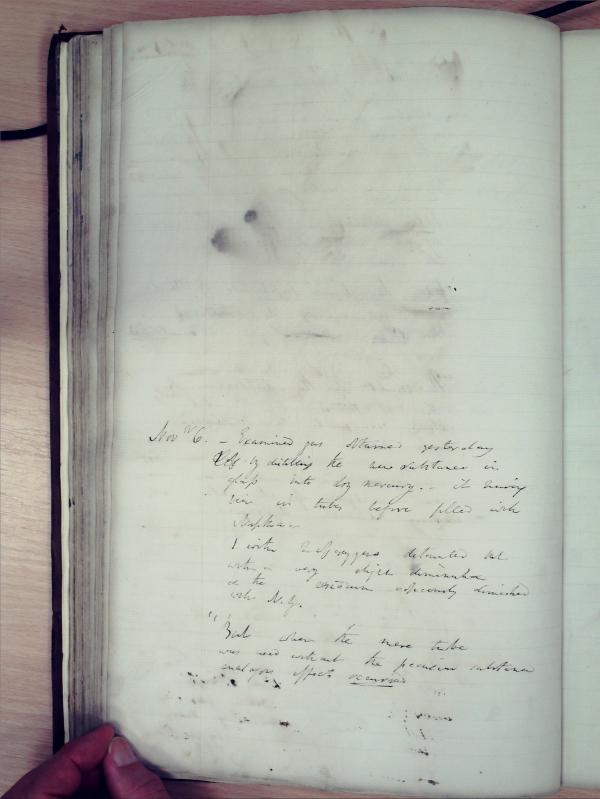 Nov 6. – Examined gas obtained yesterday
by distilling the new substance in
glass into dry mercury. – it having
been in tubes before filled with
Naptha –
1 with 2 of oxygen detonated but
with a very slight diminution
& the residuum obviously diminished
with N.G.
But when the mere tube
was used without the peculiar substance
analogous effects occurred